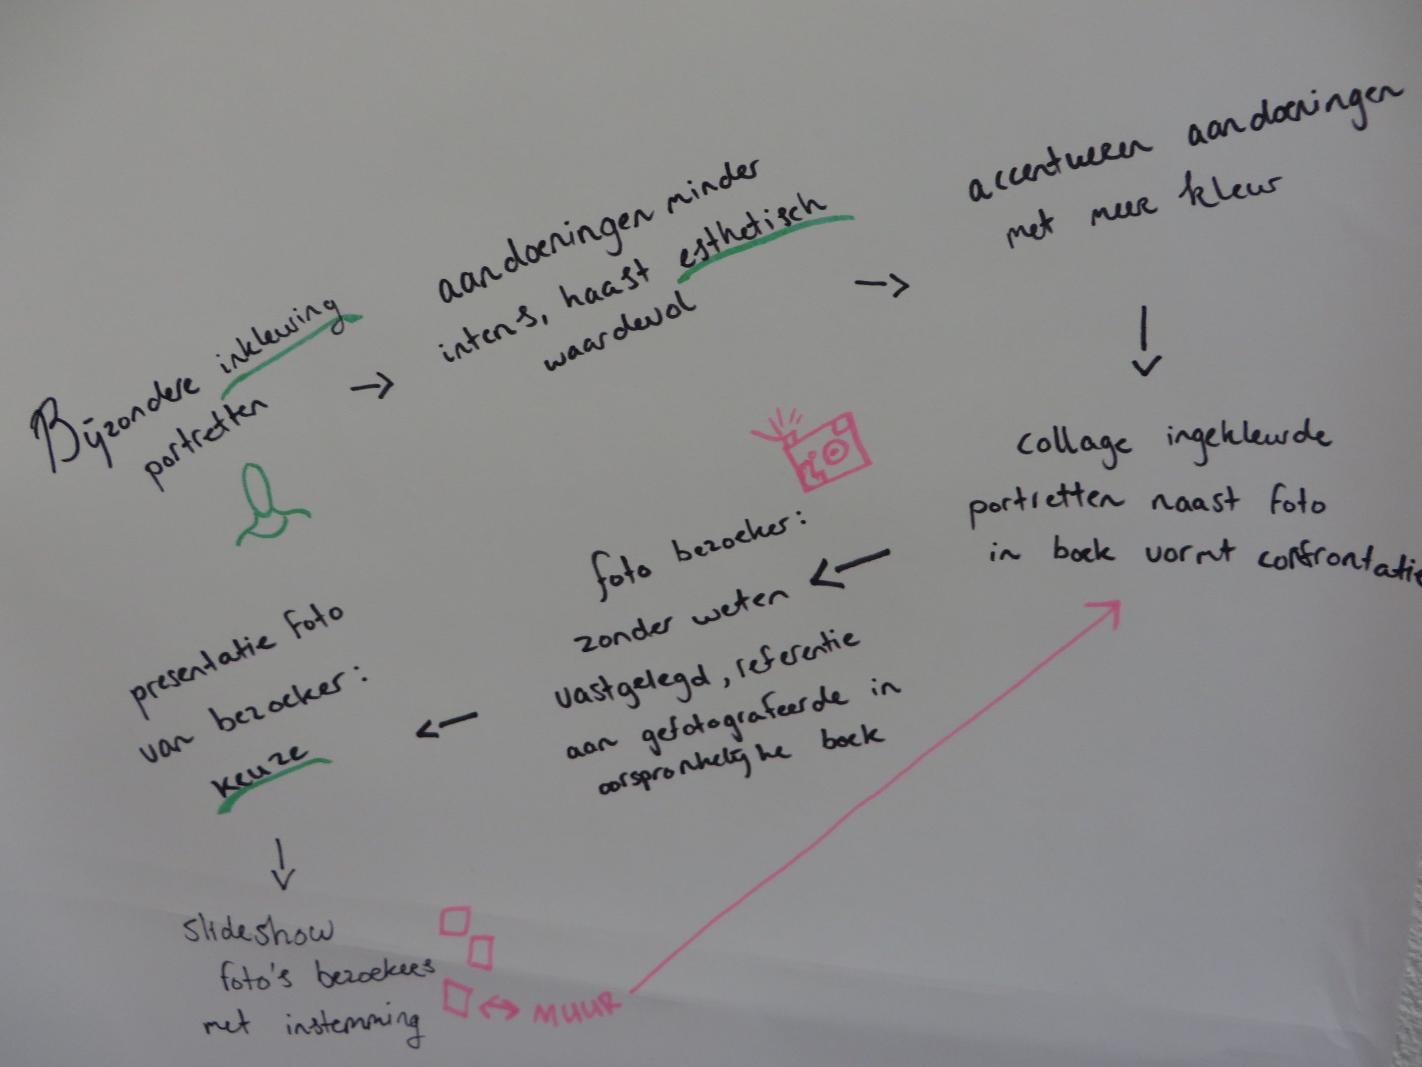 Bijzondere inkleuring
portretten
aandoeningen minder
intens, haast esthetisch
waardevol
accentueren aandoeningen
met meer kleur
collage ingekleurde
portretten naast foto
in boek vormt confrontatie
foto bezoeker:
zonder weten
vastgelegd, referentie
aan gefotografeerde in
oorspronkelijke boek
presentatie foto
van bezoeker:
keuze
slideshow
foto's bezoekers
met instemming
MUUR